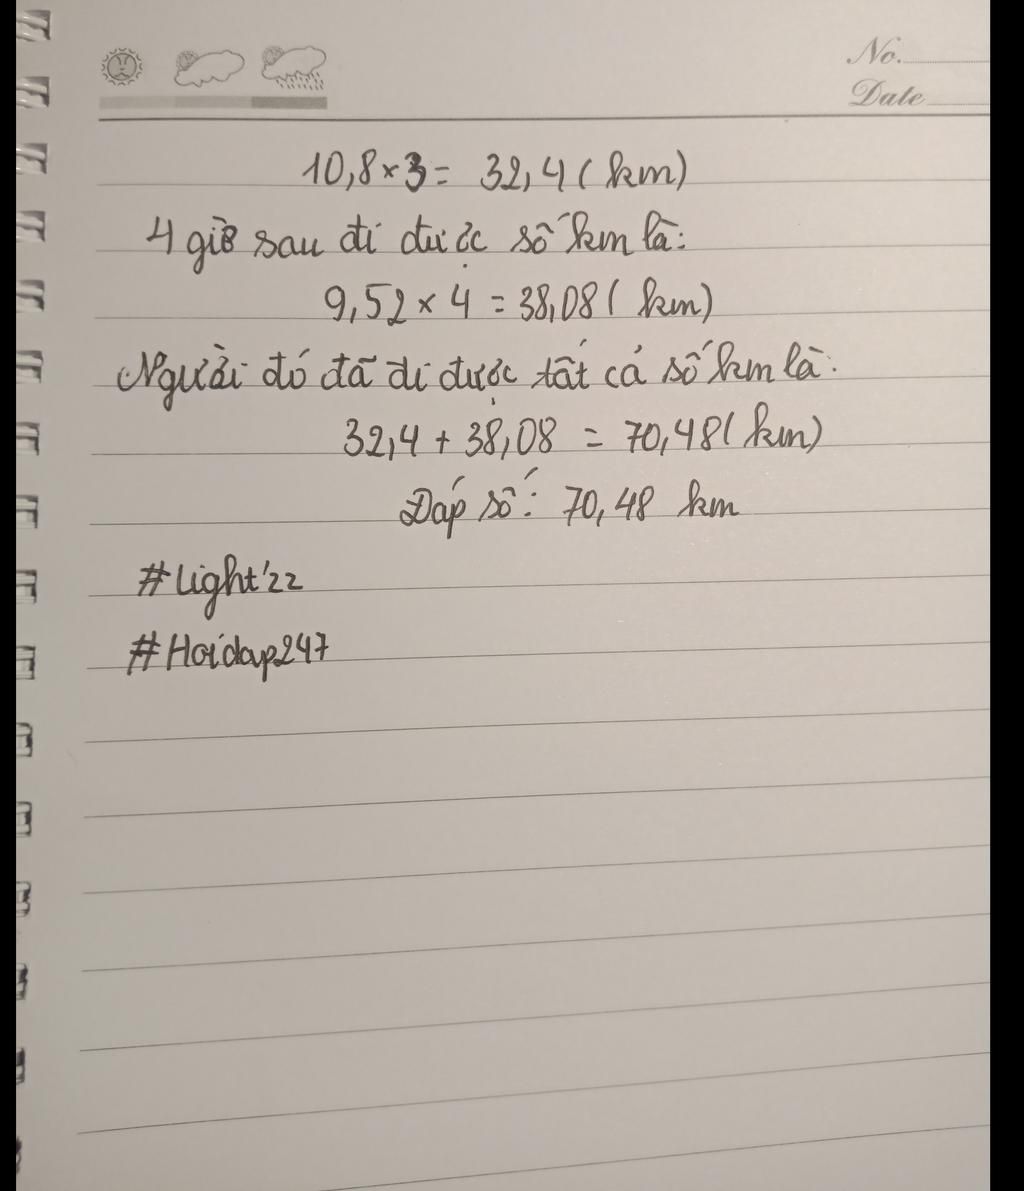 No.
Date
10,8 × 3 = 32,4 (km)
4 giờ sau đi được số km là:
9,52 × 4 = 38,08 (km)
Người đó đã đi được tất cả số km là:
32,4 + 38,08 = 70,48 (km)
Đáp số: 70,48 km
#Light'22
#Hoidap247